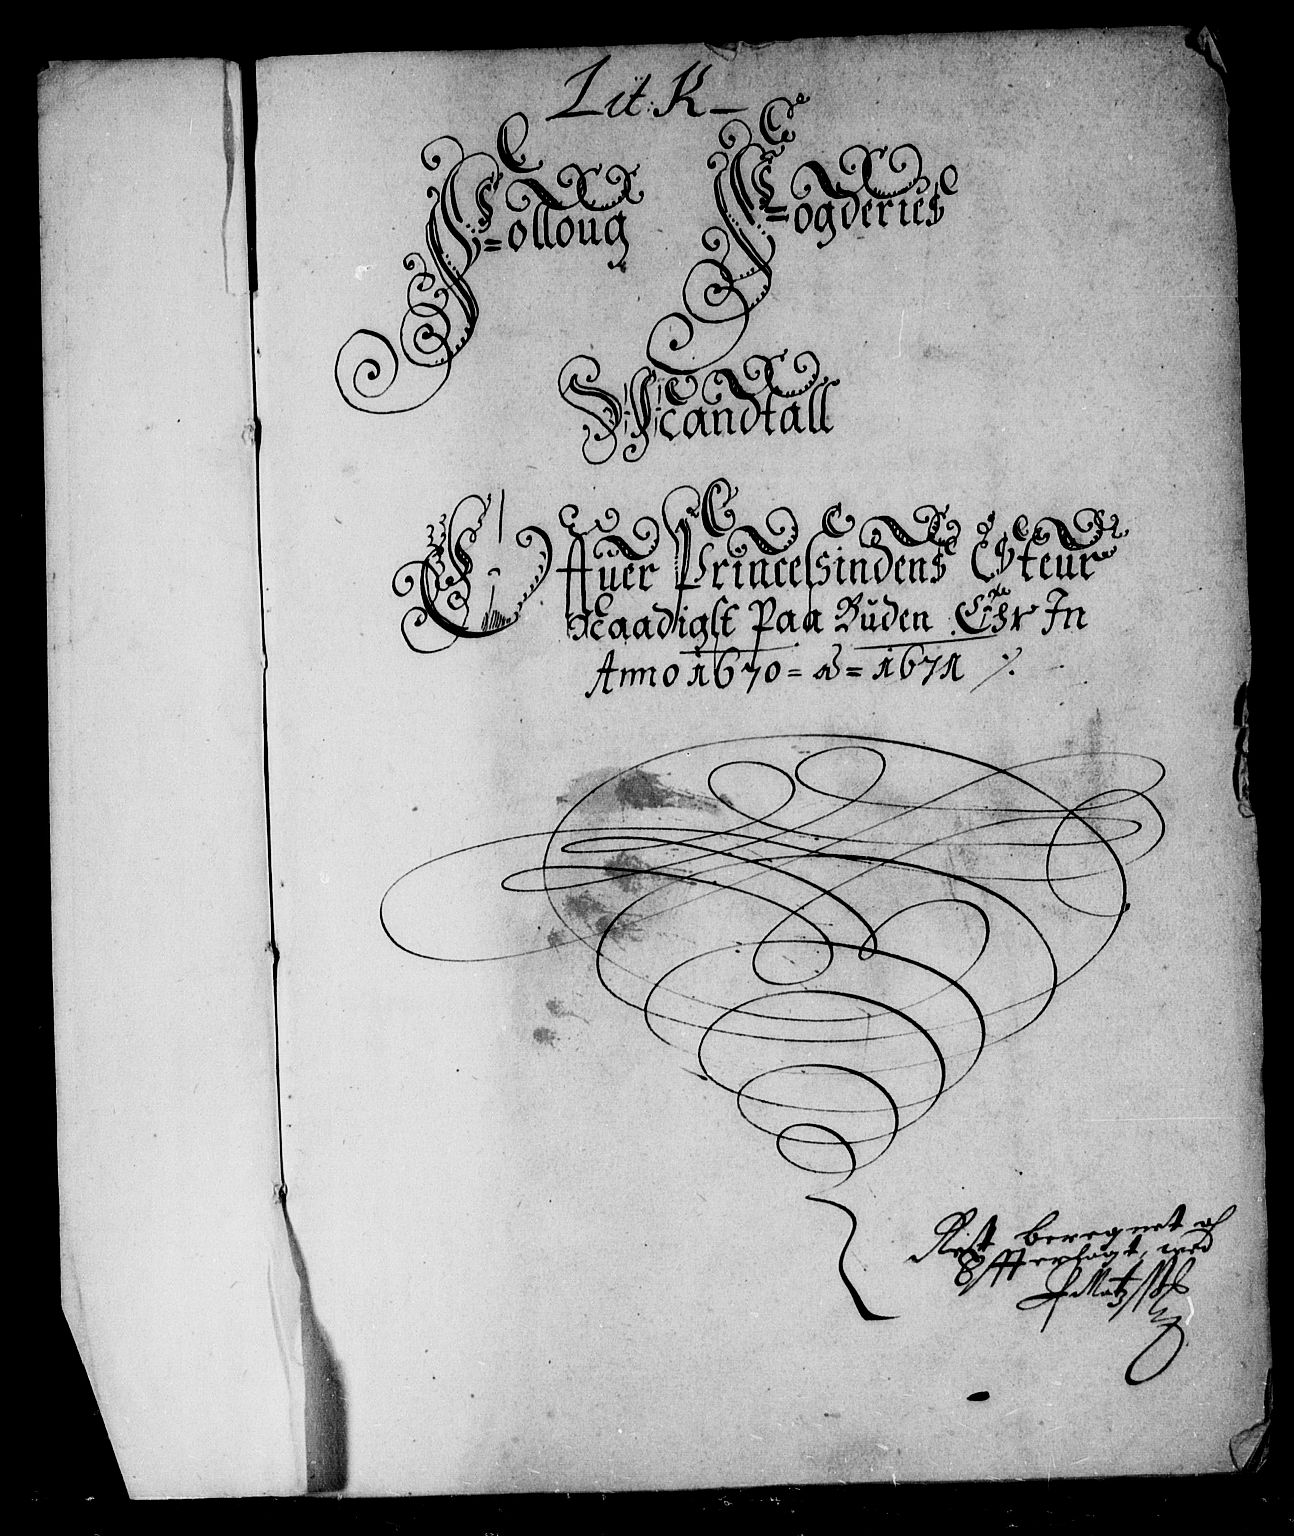 Lit: K
Folloug Fogderies
Mandtall
Offuer Princessindens Steur
Naadigst Paa Büden Er
In
Anno 1670 = à = 1671 ⁒
Rest beregnet af